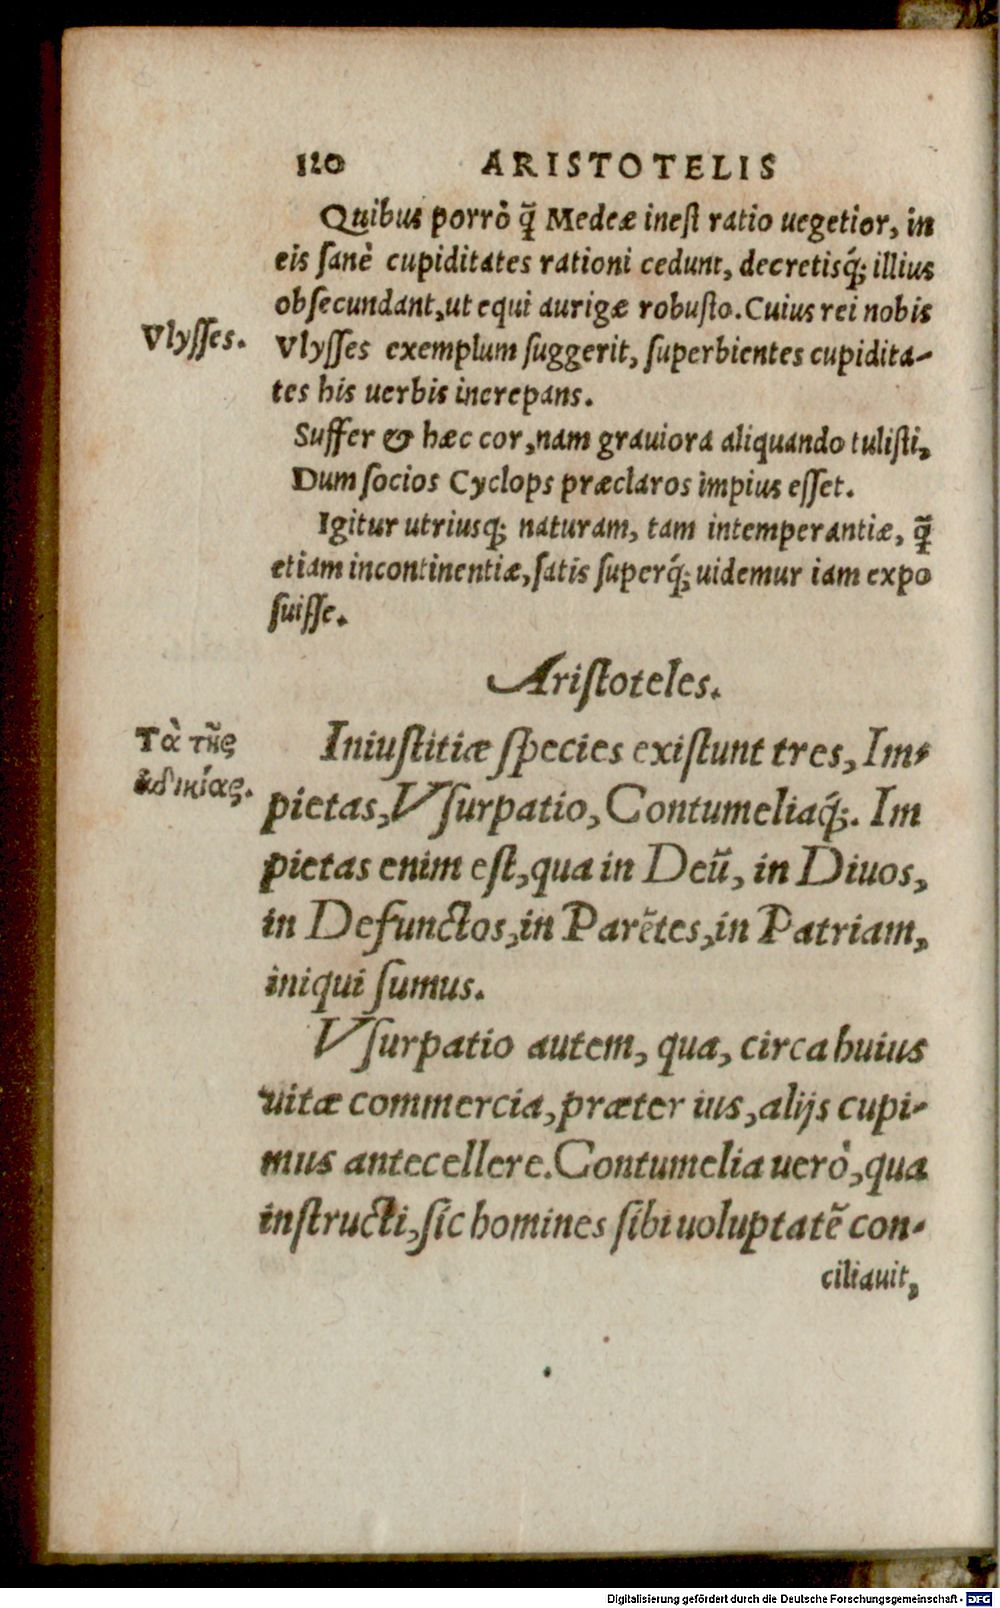 120 ARISTOTELIS
Quibus porrò q̃ Medeæ inest ratio uegetior, in
eis sanè cupiditates rationi cedunt, decretisq́; illius
obsecundant, ut equi aurigæ robusto. Cuius rei nobis
Vlysses.
Vlysses exemplum suggerit, superbientes cupidita-
tes his uerbis increpans.
Suffer & hæc cor, nam grauiora aliquando tulisti,
Dum socios Cyclops præclaros impius esset.
Igitur utriusq; naturam, tam intemperantiæ, q̃
etiam incontinentiæ, satis superq́; uidemur iam expo
suisse.
Aristoteles.
Τὰ τῆς
ἀδικίας.
Iniustitiæ species existunt tres, Im-
pietas, Vsurpatio, Contumeliaq́;. Im
pietas enim est, qua in Deũ, in Diuos,
in Defunctos, in Parẽtes, in Patriam,
iniqui sumus.
Vsurpatio autem, qua, circa huius
uitæ commercia, præter ius, alijs cupi-
mus antecellere. Contumelia uerò, qua
instructi, sic homines sibi uoluptatẽ con-
ciliauit,
Digitalisierung gefördert durch die Deutsche Forschungsgemeinschaft - DFG